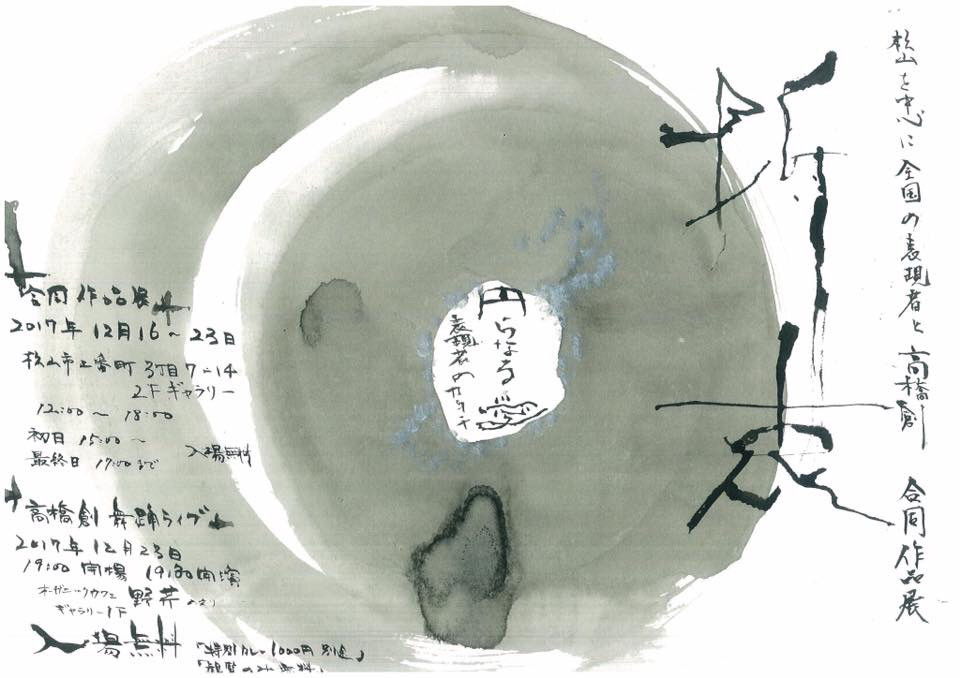 松山を中心に全国の表現者と高橋創 合同作品展
円らなる愛
表現者のカタチ
合同作品展
2017年12月16〜23日
松山市三番町3丁目7-14
2Fギャラリー
12:00〜18:00
初日 15:00〜
最終日 17:00まで
入場無料
高橋創 舞踊ライブ
2017年12月23日
19:00開場 19:30開演
オーガニックカフェ 野芹 のせり
ギャラリー1F
入場無料
「特別カレー1000円別途」
「観覧のみ無料」